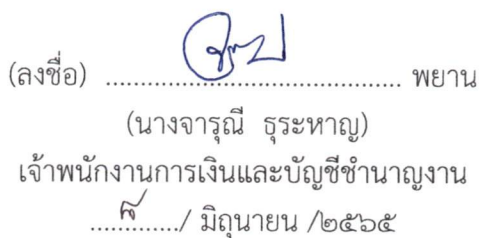 (ลงชื่อ) ........................................ พยาน
(นางจารุณี ธุระหาญ)
เจ้าพนักงานการเงินและบัญชีชำนาญงาน
............/ มิถุนายน /๒๕๖๕